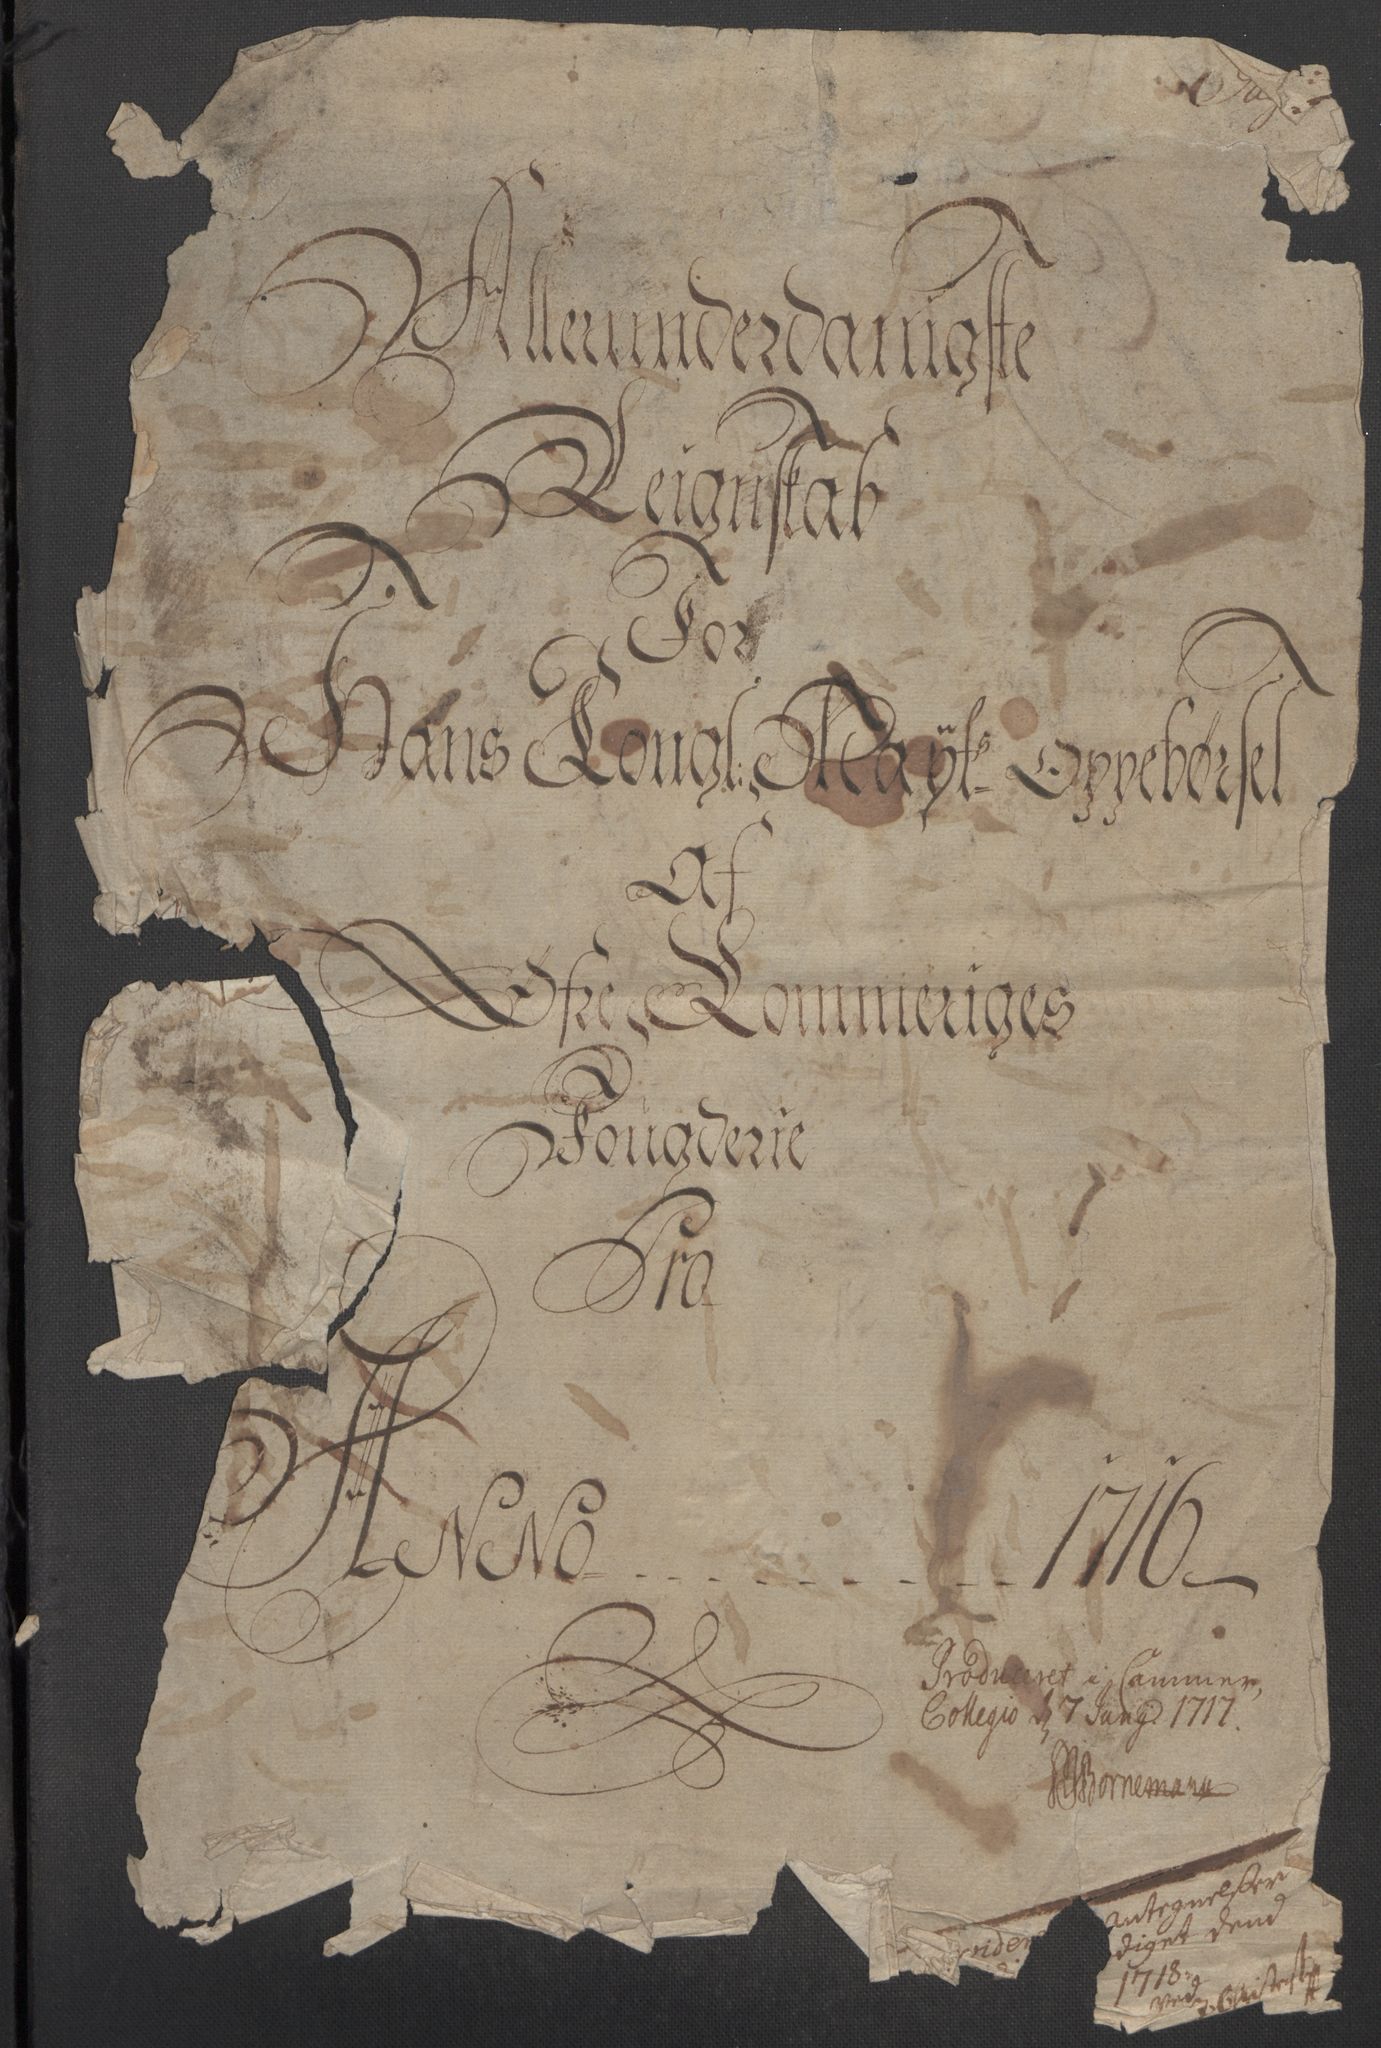 Allerunderdanigste
Reignskab
For
Hans Kongl: Mayts Oppebørsel
Af
Øfre Rommeriges
Fougderie
Pro
ANNO 1716
Produceret i Cammer
Collegio d 7 Jung 1717.
Bornemann
antegnelser
diget dend
1718
ved